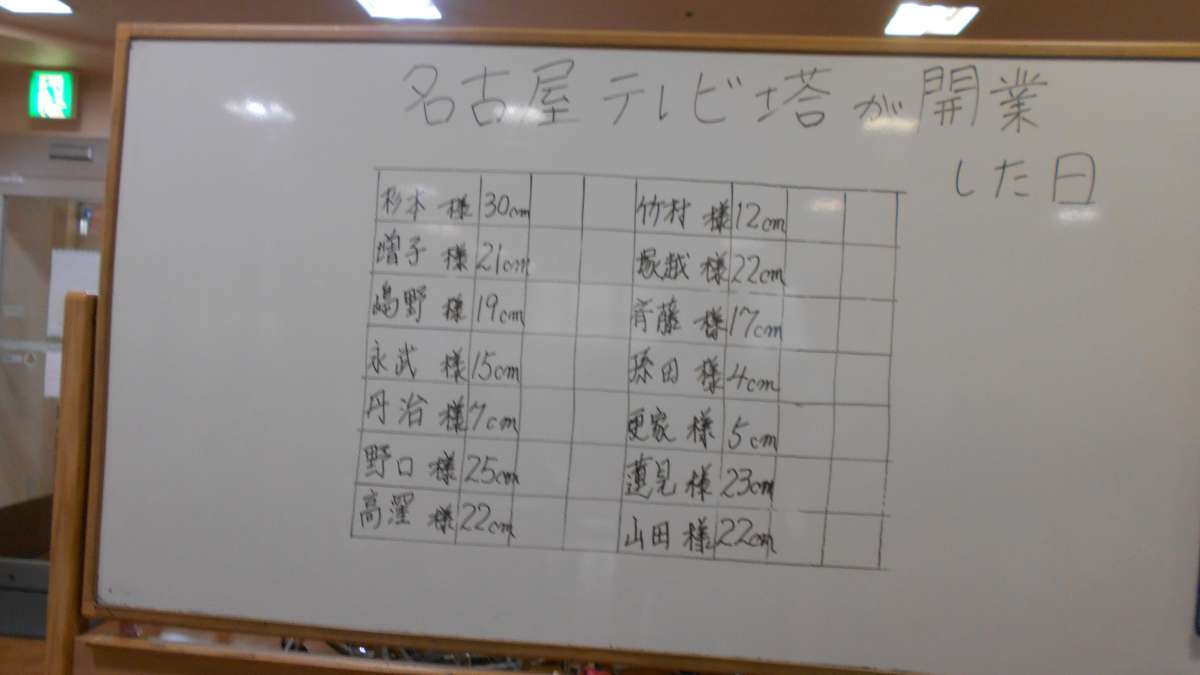 名古屋テレビ塔が開業
した日
杉本 様 30cm 竹村 様 12cm
増子 様 21cm 塚越 様 22cm
嶋野 様 19cm 斉藤 様 17cm
永武 様 15cm 孫田 様 4cm
丹治 様 7cm 更家 様 5cm
野口 様 25cm 蓮見 様 23cm
高窪 様 22cm 山田 様 22cm